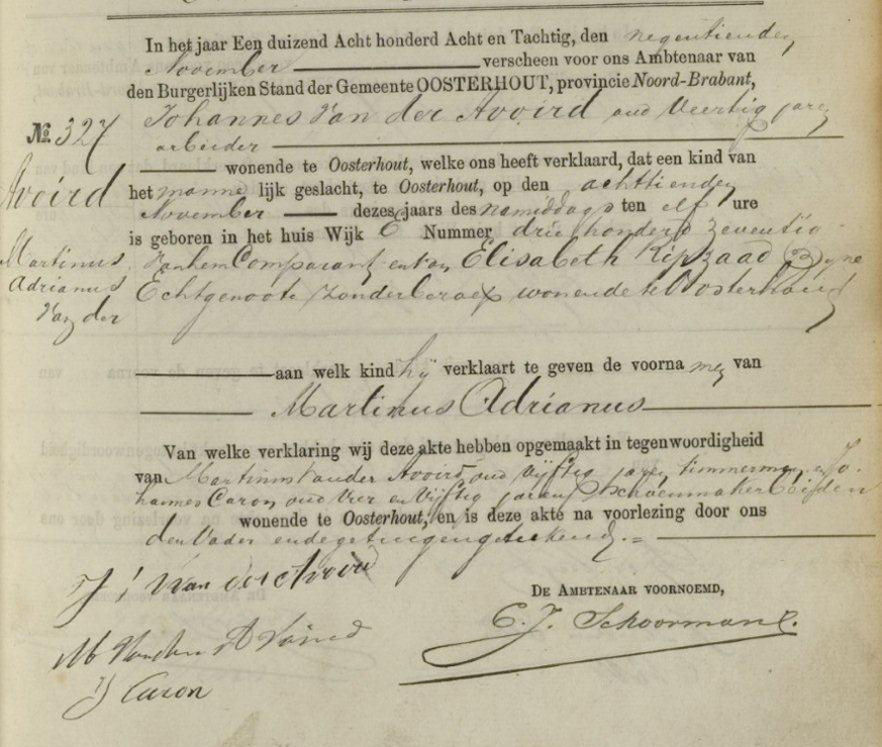 In het jaar Een duizend Acht honderd Acht en Tachtig, den negentienden
November verscheen voor ons Ambtenaar van
den Burgerlijken Stand der Gemeente OOSTERHOUT, provincie Noord-Brabant,
No. 327
Johannes Van der Avoird oud Veertig jaren
arbeider
wonende te Oosterhout, welke ons heeft verklaard, dat een kind van
Avoird
het mannelijk geslacht, te Oosterhout, op den achttienden
November dezes jaars des namiddags ten elf ure
is geboren in het huis Wijk E Nummer drie honderd zeventig
Martinus
Adrianus
Van der
van hem Comparant en van Elisabeth Ripzaad Zyne
Echtgenoote zonder beroep wonende te Oosterhout
aan welk kind hij verklaart te geven de voornamen van
Martinus Adrianus
Van welke verklaring wij deze akte hebben opgemaakt in tegenwoordigheid
van Martinus Van der Avoird, oud Vijftig jaren, timmerman, en Jo-
hannes Caron oud Vier en Vijftig jaren, schoenmaker beiden
wonende te Oosterhout, en is deze akte na voorlezing door ons
den Vader en de getuigen geteekend.
J Van der Avoird
DE AMBTENAAR VOORNOEMD,
E. J. Schoormans.
M Van der Avoird
J Caron